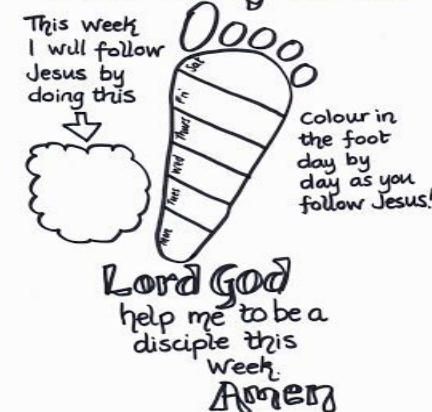 This week
I will follow
Jesus by
doing this
Sat
Fri
Thurs
Wed
Tues
Mon
Colour in
the foot
day by
day as you
follow Jesus!
Lord God
help me to be a
disciple this
week.
Amen